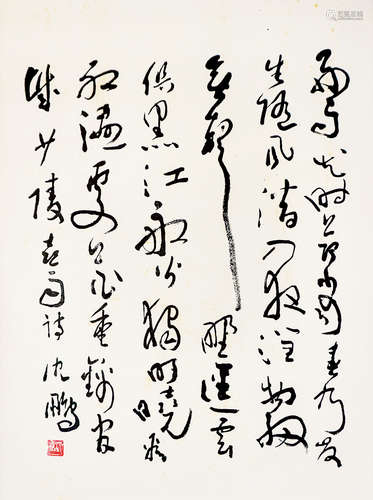 好雨知时节当春乃发
生随风潜入夜润物细
无声野径云
俱黑江船火独明晓看
红湿处花重锦官
城少陵喜雨诗沈鹏